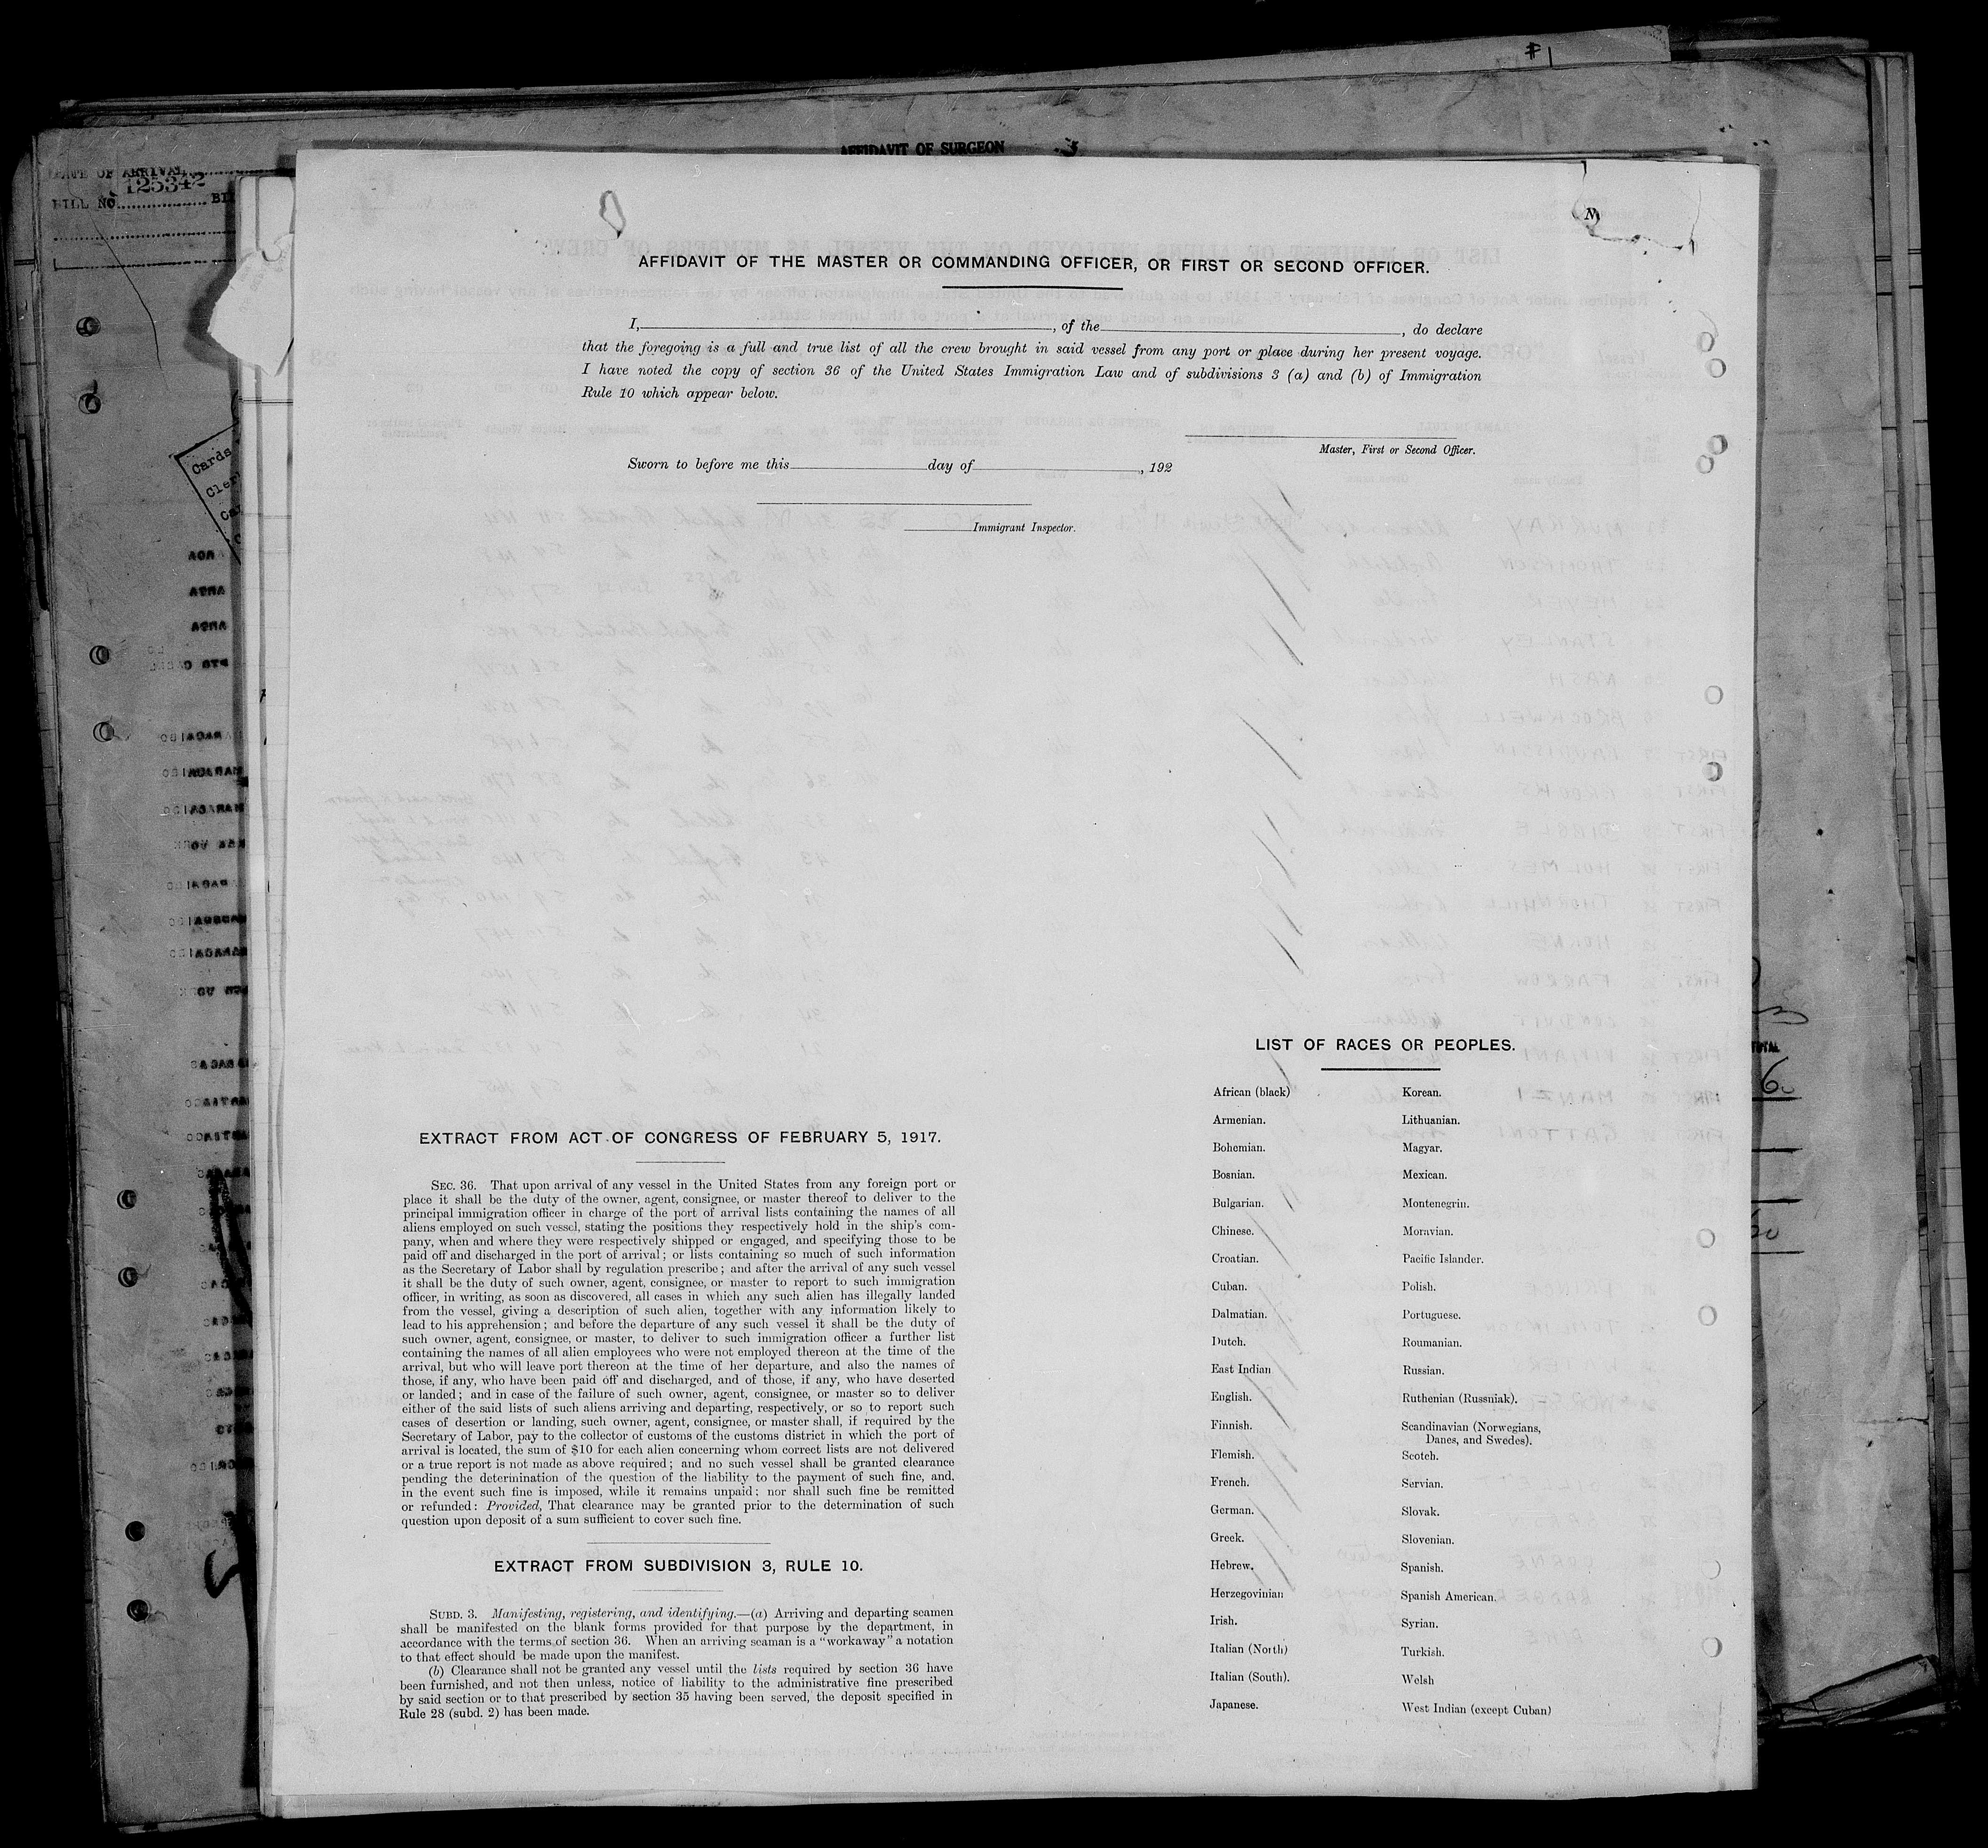 #1
AFFIDAVIT OF SURGEON
DATE OF ARRIVAL
125342
BILL NO.
AFFIDAVIT OF THE MASTER OR COMMANDING OFFICER, OR FIRST OR SECOND OFFICER.
I, , of the , do declare
that the foregoing is a full and true list of all the crew brought in said vessel from any port or place during her present voyage.
I have noted the copy of section 36 of the United States Immigration Law and of subdivisions 3 (a) and (b) of Immigration
Rule 10 which appear below.
Master, First or Second Officer.
Sworn to before me this day of , 192
Immigrant Inspector.
Cards
EXTRACT FROM ACT OF CONGRESS OF FEBRUARY 5, 1917.
SEC. 36. That upon arrival of any vessel in the United States from any foreign port or
place it shall be the duty of the owner, agent, consignee, or master thereof to deliver to the
principal immigration officer in charge of the port of arrival lists containing the names of all
aliens employed on such vessel, stating the positions they respectively hold in the ship's com-
pany, when and where they were respectively shipped or engaged, and specifying those to be
paid off and discharged in the port of arrival; or lists containing so much of such information
as the Secretary of Labor shall by regulation prescribe; and after the arrival of any such vessel
it shall be the duty of such owner, agent, consignee, or master to report to such immigration
officer, in writing, as soon as discovered, all cases in which any such alien has illegally landed
from the vessel, giving a description of such alien, together with any information likely to
lead to his apprehension; and before the departure of any such vessel it shall be the duty of
such owner, agent, consignee, or master, to deliver to such immigration officer a further list
containing the names of all alien employees who were not employed thereon at the time of the
arrival, but who will leave port thereon at the time of her departure, and also the names of
those, if any, who have been paid off and discharged, and of those, if any, who have deserted
or landed; and in case of the failure of such owner, agent, consignee, or master so to deliver
either of the said lists of such aliens arriving and departing, respectively, or so to report such
cases of desertion or landing, such owner, agent, consignee, or master shall, if required by the
Secretary of Labor, pay to the collector of customs of the customs district in which the port of
arrival is located, the sum of $10 for each alien concerning whom correct lists are not delivered
or a true report is not made as above required; and no such vessel shall be granted clearance
pending the determination of the question of the liability to the payment of such fine, and,
in the event such fine is imposed, while it remains unpaid; nor shall such fine be remitted
or refunded: Provided, That clearance may be granted prior to the determination of such
question upon deposit of a sum sufficient to cover such fine.
EXTRACT FROM SUBDIVISION 3, RULE 10.
SUBD. 3. Manifesting, registering, and identifying.—(a) Arriving and departing seamen
shall be manifested on the blank forms provided for that purpose by the department, in
accordance with the terms of section 36. When an arriving seaman is a "workaway" a notation
to that effect should be made upon the manifest.
(b) Clearance shall not be granted any vessel until the lists required by section 36 have
been furnished, and not then unless, notice of liability to the administrative fine prescribed
by said section or to that prescribed by section 35 having been served, the deposit specified in
Rule 28 (subd. 2) has been made.
LIST OF RACES OR PEOPLES.
African (black)
Armenian.
Bohemian.
Bosnian.
Bulgarian.
Chinese.
Croatian.
Cuban.
Dalmatian.
Dutch.
East Indian
English.
Finnish.
Flemish.
French.
German.
Greek.
Hebrew.
Herzegovinian
Irish.
Italian (North)
Italian (South).
Japanese.
Korean.
Lithuanian.
Magyar.
Mexican.
Montenegrin.
Moravian.
Pacific Islander.
Polish.
Portuguese.
Roumanian.
Russian.
Ruthenian (Russniak).
Scandinavian (Norwegians,
Danes, and Swedes).
Scotch.
Servian.
Slovak.
Slovenian.
Spanish.
Spanish American.
Syrian.
Turkish.
Welsh
West Indian (except Cuban)
TOTAL